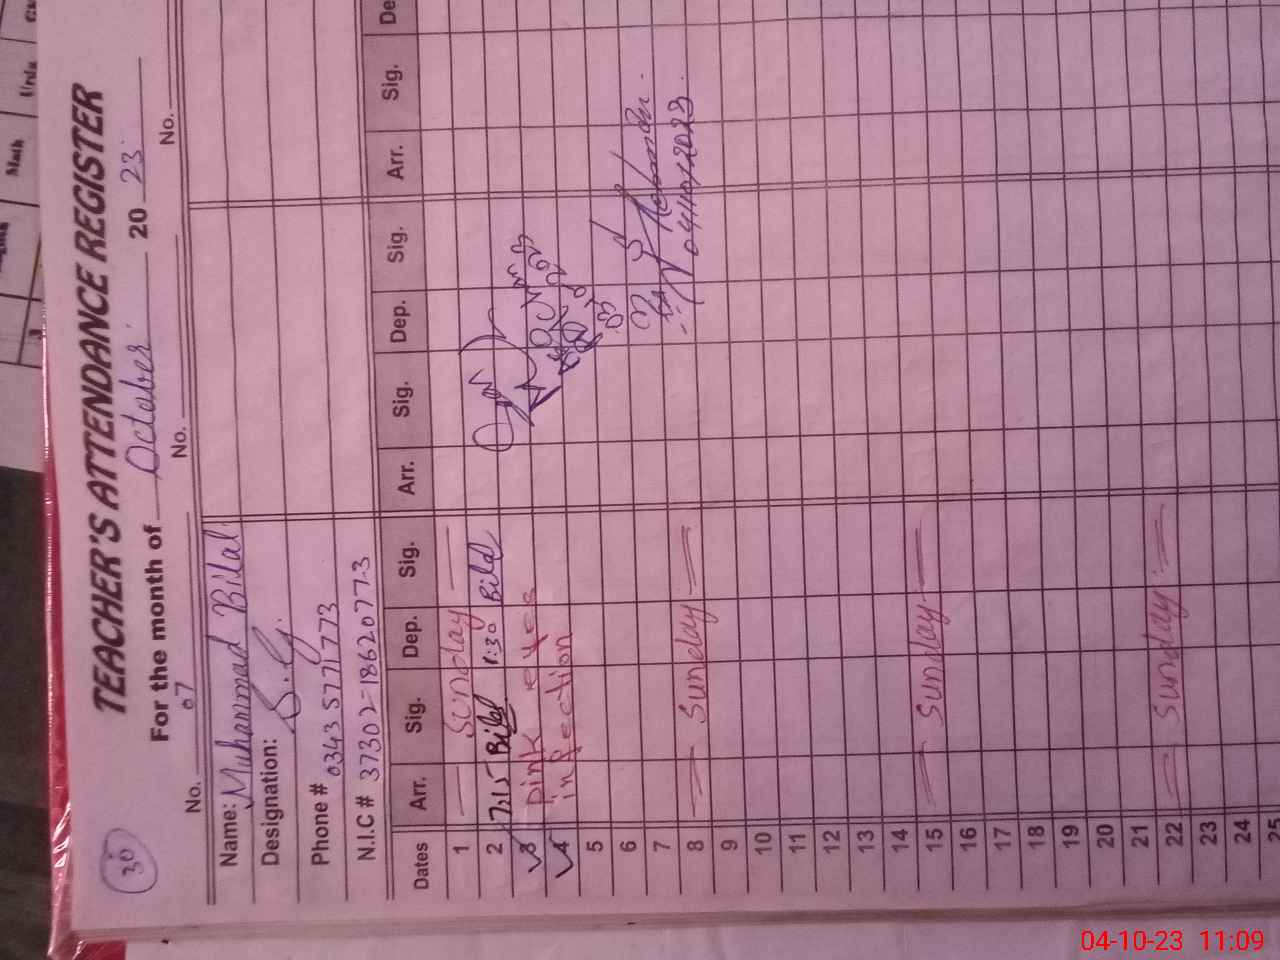 30
TEACHER'S ATTENDANCE REGISTER
For the month of October 20 23
No. 07 No. No.
Name: Muhammad Bilal
Designation: S.G.
Phone # 0343 5771773
N.I.C # 37302-1862077-3
Dates Arr. Sig. Dep. Sig. Arr. Sig. Dep. Sig. Arr. Sig. De
1 Sunday
2 7:15 Bilal 1:30 Bilal
3 pink eyes
4 infection
5
6
7 04/10/2023
8 Sunday
9
10
11
12
13
14
15 Sunday
16
17
18
19
20
21
22 Sunday
23
24
25
Math
Urdu
04-10-23 11:09